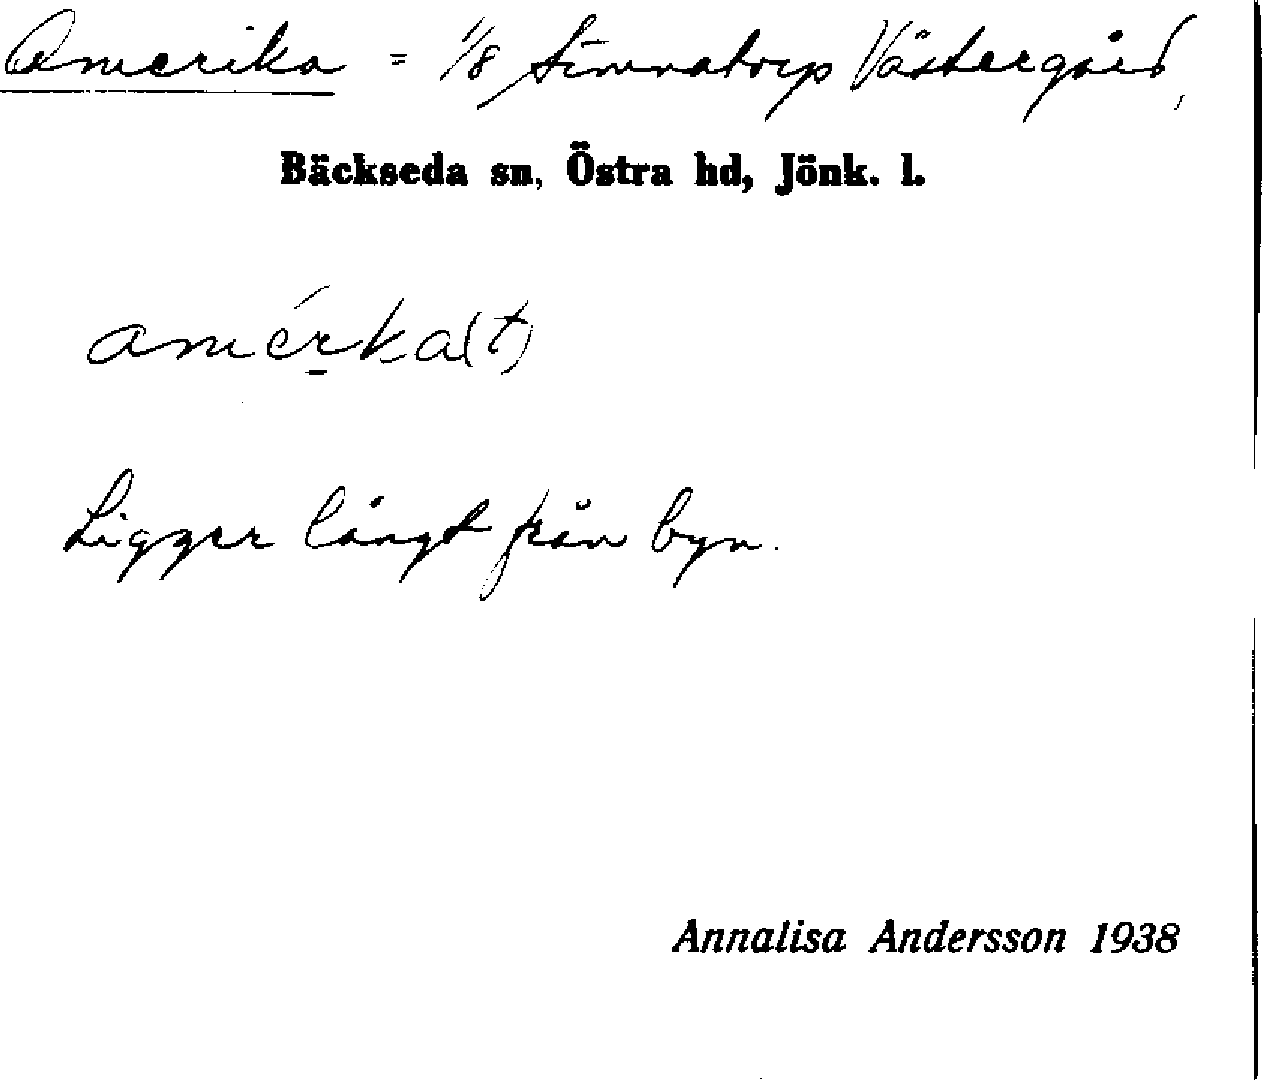 Amerika = 1/8 Simnatorp Västergård,
Bäckseda sn, Östra hd, Jönk. l.
amérka(t)
Ligger långt från byn.
Annalisa Andersson 1938